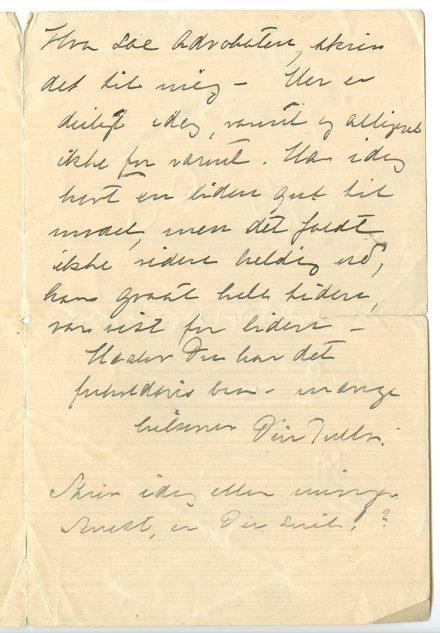 Hva sa Advokaten, skriv
det til mig – Her er
deiligt idag, varmt og alligevel
ikke for varmt. Har idag
havt en liden gut til
model, men det faldt
ikke videre heldig ud,
han graat hele tiden,
var vist for liden –
Haaber Du har det
forholdsvis bra – mange
hilsener Din
Skriv idag eller
er Du snil!?